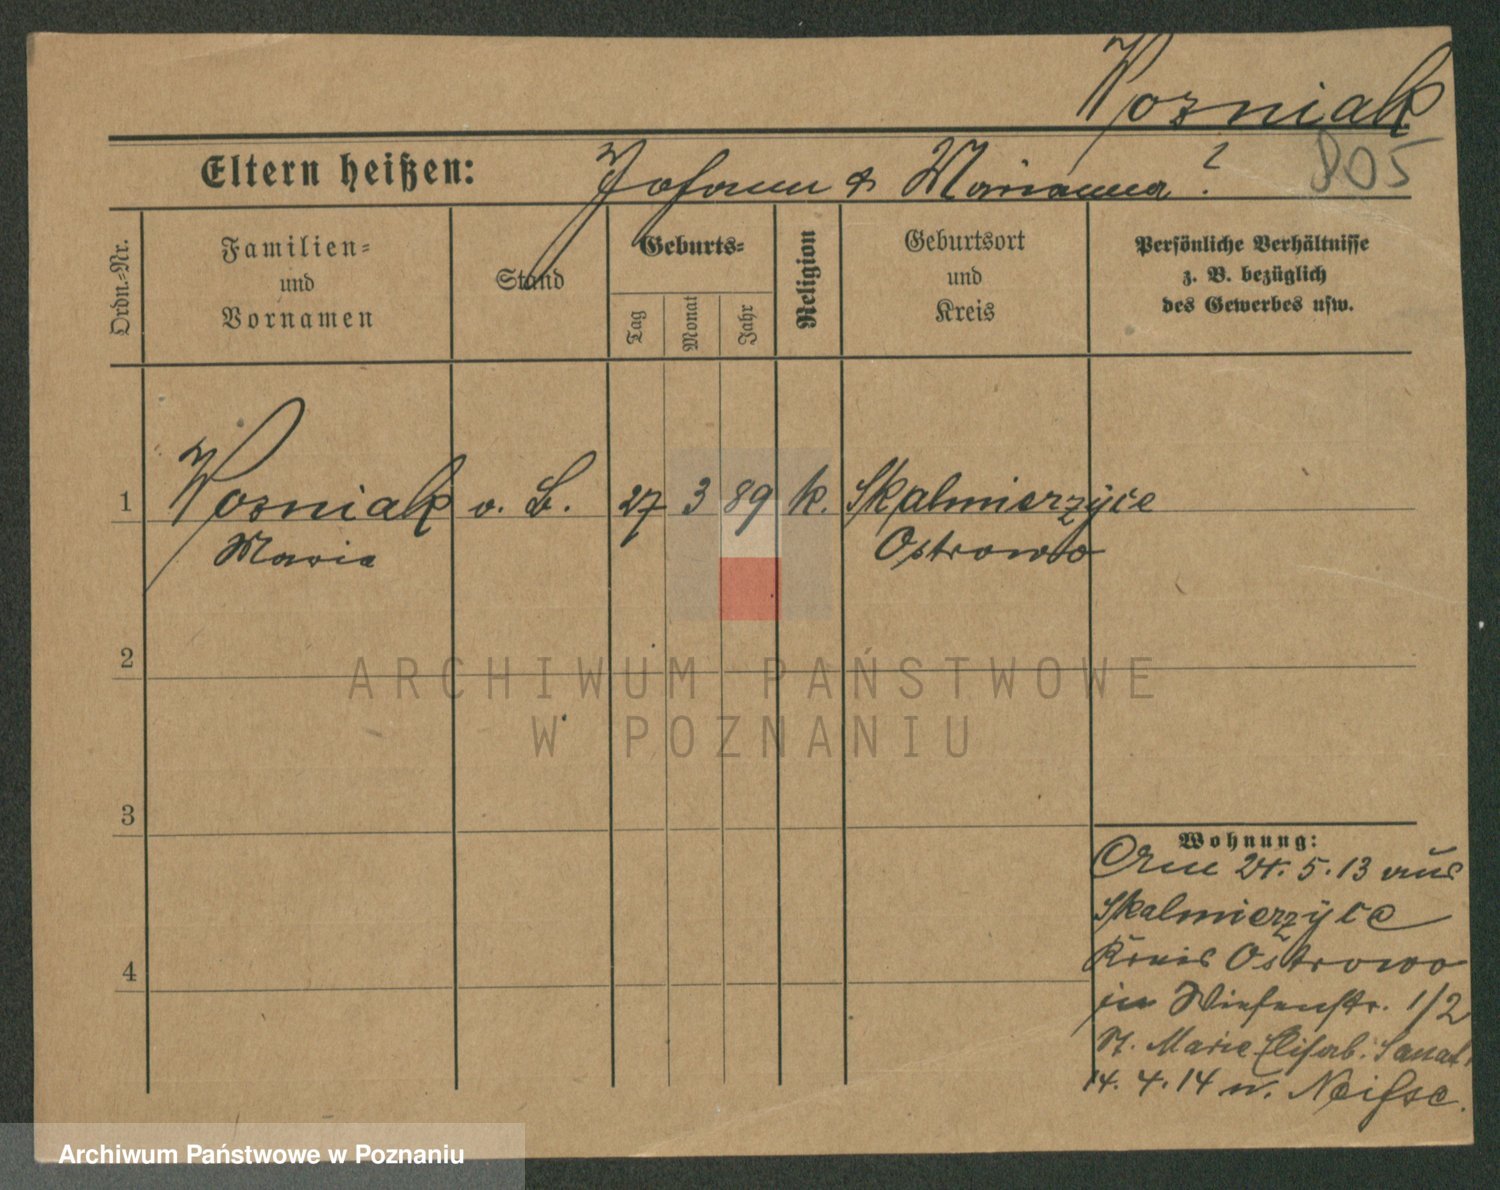 Wozniak
805
Eltern heißen: Johann & Marianna ?
Ordn.-Nr.
Familien-
und
Vornamen
Stand
Geburts-
Tag
Monat
Jahr
Religion
Geburtsort
und
Kreis
Persönliche Verhältnisse
z. B. bezüglich
des Gewerbes usw.
1 Wozniak o. B. 27 3 89 k. Skalmierzÿce
Maria Ostrowo
2
3
4
Wohnung:
Am 24. 5. 13 aus
Skalmierzÿce
Kreis Ostrowo
in Wiesenstr. 1/2
St. Marie Elisab. Sanat.
14. 4. 14 n. Neisse.
ARCHIWUM PAŃSTWOWE
W POZNANIU
Archiwum Państwowe w Poznaniu